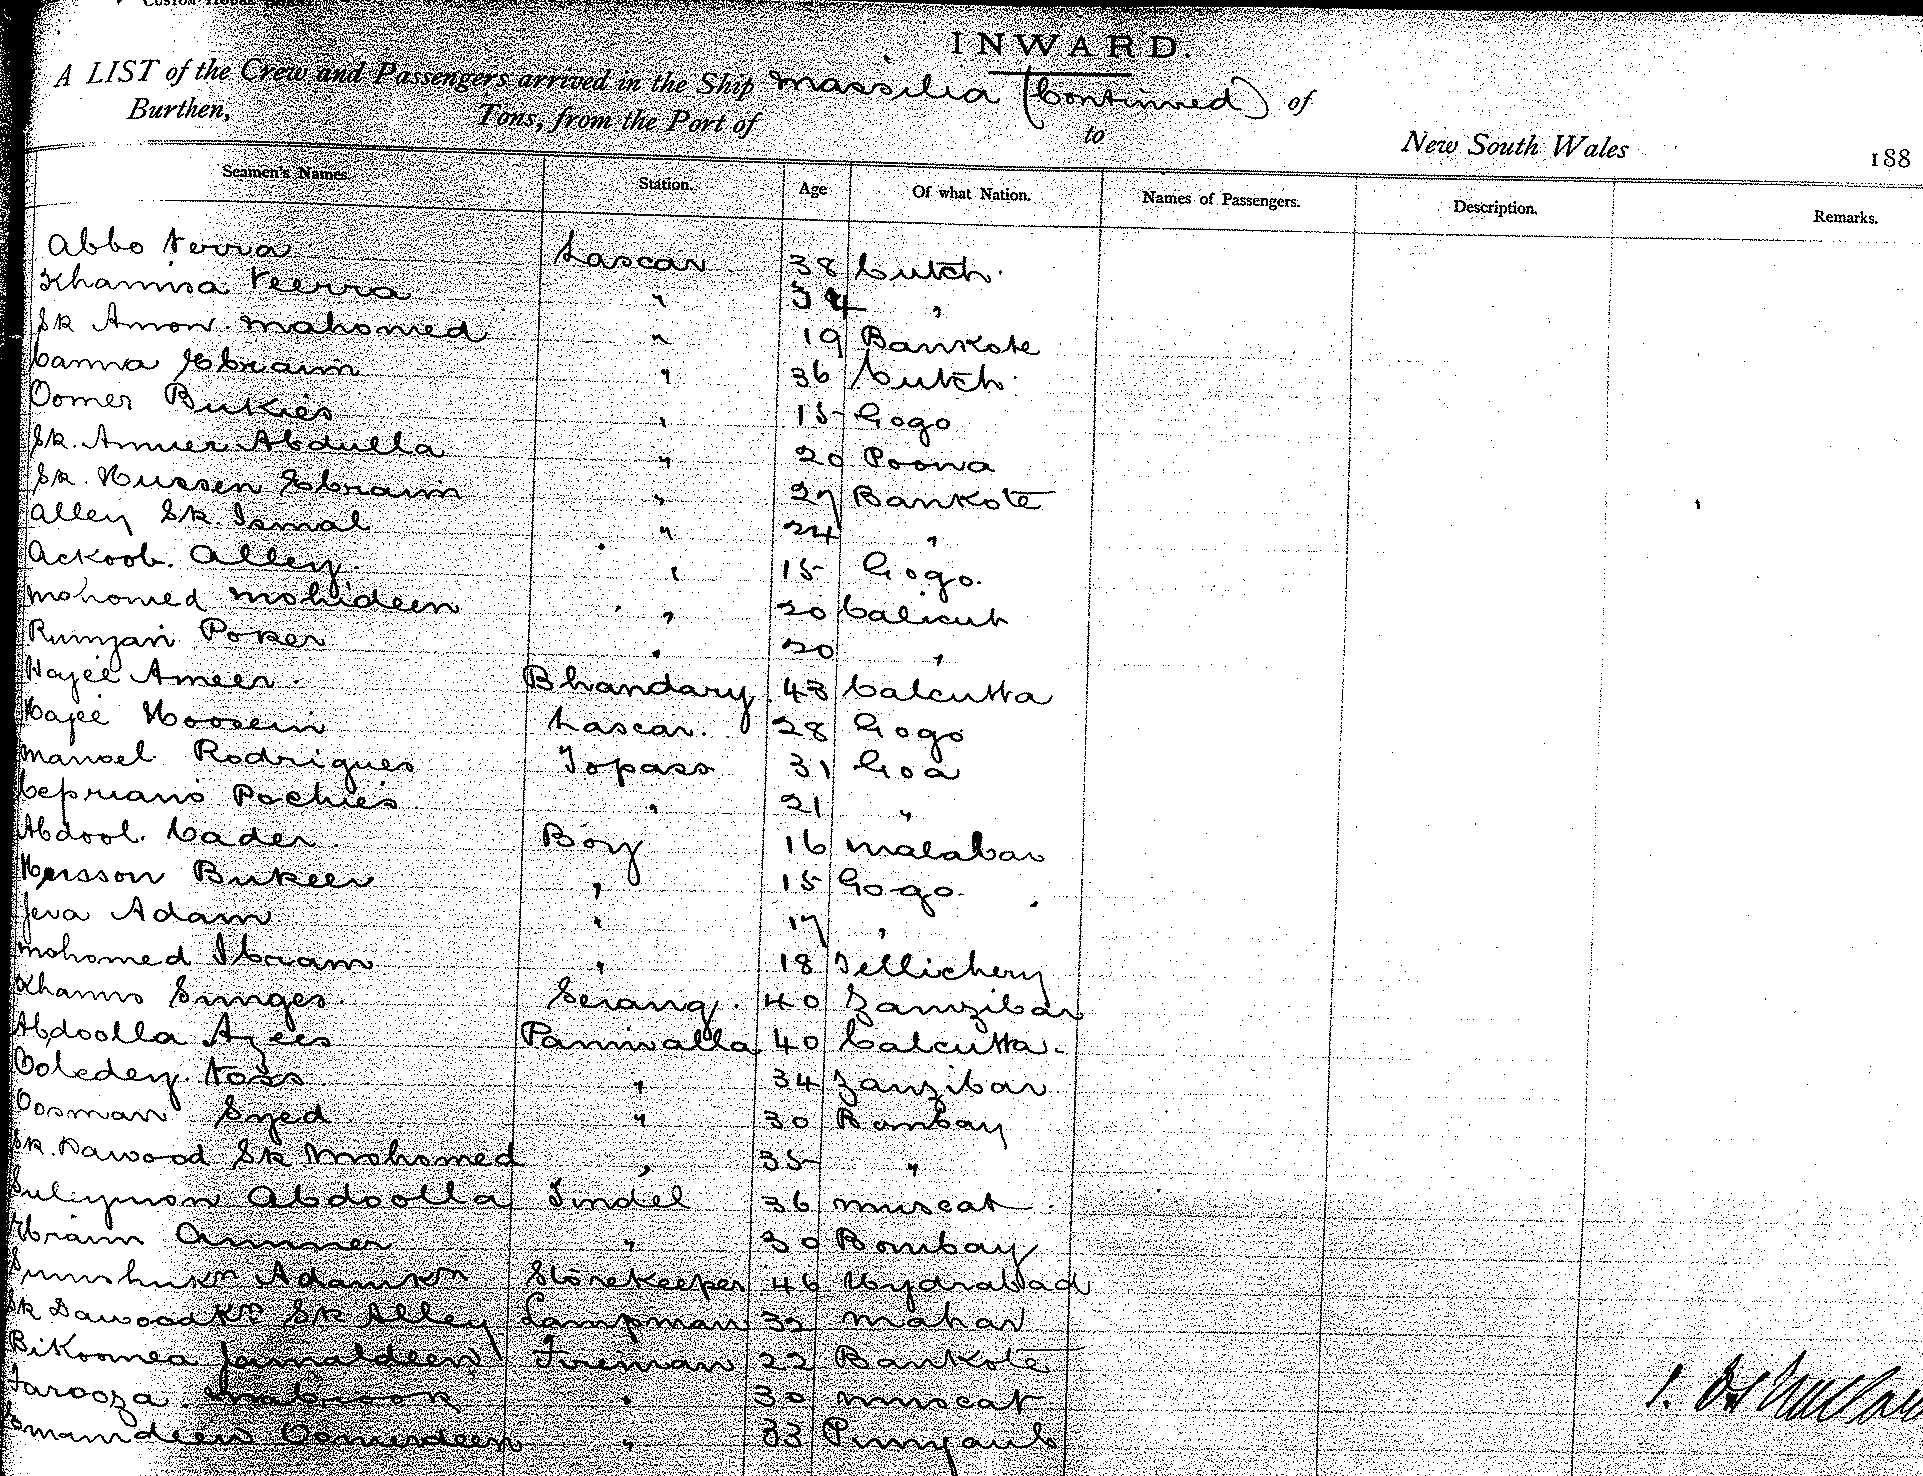 INWARD.
A LIST of the Crew and Passengers arrived in the Ship Massilia (Continued) of
Burthen, Tons, from the Port of to New South Wales 188
Seamen's Names. Station. Age Of what Nation. Names of Passengers. Description. Remarks.
Abbo Verra Lascar 38 Cutch.
Khamisa Veerra " 34 "
Sk Amon Mahomed " 19 Bankote
Canna Ebraim " 36 Cutch.
Oomer Bukies " 15 Gogo
Sk. Ameer Abdulla " 20 Poona
Sk. Hussen Ebraim " 27 Bankote
Alley Sk. Ismal " 24 "
Ackoob. Alley. " 15 Gogo.
Mohomed Mohideen " 20 Calicut
Rumjan Poker " 20 "
Hajee Ameer. Bhandary 43 Calcutta
Hajee Hoosein Lascar. 28 Gogo
Manoel Rodrigues Topass 31 Goa
Cepriano Pochies " 21 "
Abdool. Cader. Boy 16 Malabar
Hersson Bukeer " 15 Gogo
Jeva Adam " 17 "
Mohomed Ibram " 18 Tellichery
Khamis Sunges. Serang. 40 Zanzibar
Abdoolla Azees Panniwalla 40 Calcutta.
Voss " 34 Zanzibar
Oosman Syed " 30 Bombay
Sk. Dawood Sk Mohomed " 35 "
Suleymon Abdoolla Tindel 36 Muscat.
Ebraim Ammer " 30 Bombay
Adamkn Storekeeper 46 Hydrabad
Sk Dawoodkn Sk Alley Lampman 32 Mahar
Bikoomea Jamaldeen Fireman 22 Bankote
Farooza. Mabrook " 30 Muscat
Emamdeen Oomerdeen " 33 Punjaub